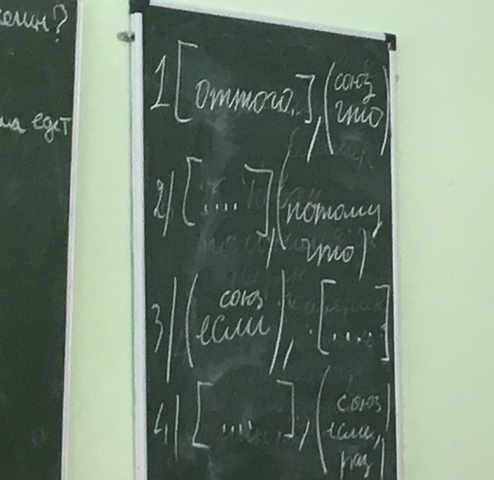 ма едет
1 [оттого..], (союз
что)
2) [....], (потому
что)
3) (союз
если), [....]
4) [....], (союз
если,
раз)